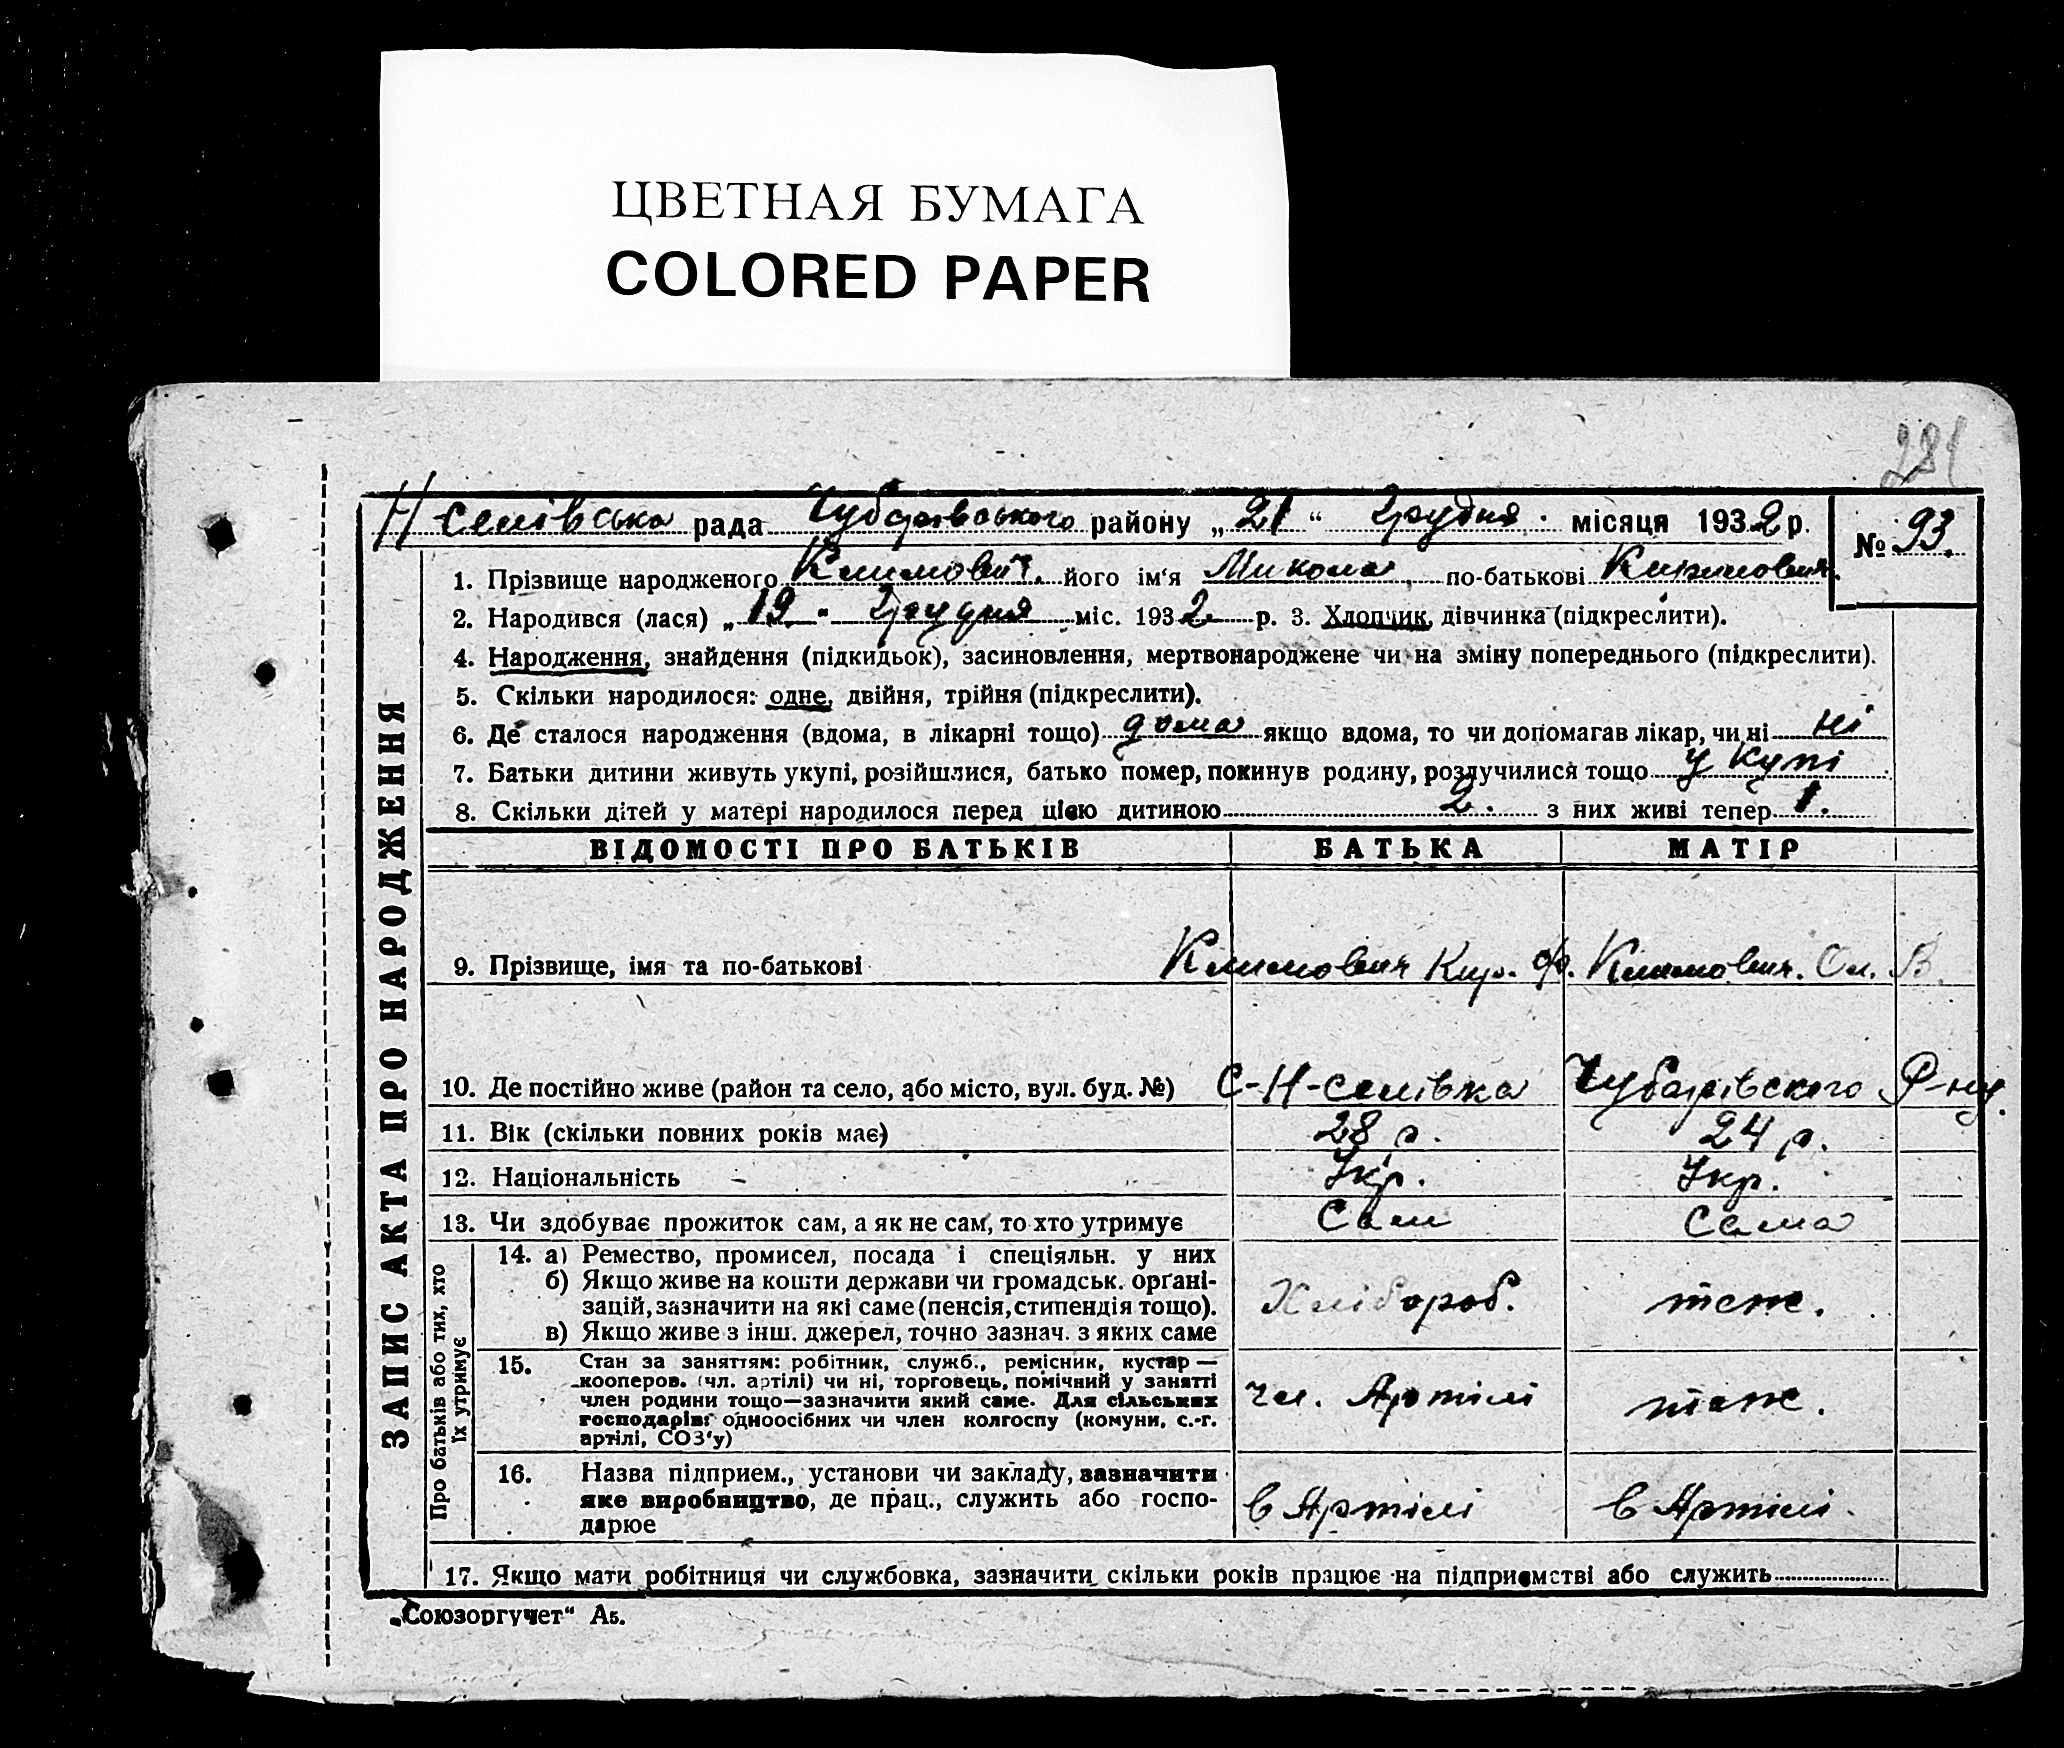 ЦВЕТНАЯ БУМАГА
COLORED PAPER
281
Н-Селівська рада Чубарівського району „21“ Грудня місяця 1932 р.
№ 93.
ЗАПИС АКТА ПРО НАРОДЖЕННЯ
1. Прізвище народженого Климович, його ім'я Микола, по-батькові Кирилович.
2. Народився (лася) „19" Грудня міс. 1932 р. 3. Хлопчик, дівчинка (підкреслити).
4. Народження, знайдення (підкидьок), засиновлення, мертвонароджене чи на зміну попереднього (підкреслити).
5. Скільки народилося: одне, двійня, трійня (підкреслити).
6. Де сталося народження (вдома, в лікарні тощо) дома якщо вдома, то чи допомагав лікар, чи ні ні
7. Батьки дитини живуть укупі, розійшлися, батько помер, покинув родину, розлучилися тощо у купі
8. Скільки дітей у матері народилося перед цією дитиною 2. з них живі тепер 1.
ВІДОМОСТІ ПРО БАТЬКІВ БАТЬКА МАТІР
9. Прізвище, імя та по-батькові Климович Кир. Ф. Климович. Ол. В
10. Де постійно живе (район та село, або місто, вул. буд. №) С-Н-Селівка Чубарівського Р-ну.
11. Вік (скільки повних років має) 28 р. 24 р.
12. Національність Укр. Укр.
13. Чи здобуває прожиток сам, а як не сам, то хто утримує Сам Сама
Про батьків або тих, хто
їх утримує
14. а) Ремество, промисел, посада і спеціяльн. у них
б) Якщо живе на кошти держави чи громадськ. орґані-
зацій, зазначити на які саме (пенсія, стипендія тощо).
в) Якщо живе з інш. джерел, точно зазнач. з яких саме
Хлібороб. теж.
15. Стан за заняттям: робітник, служб., ремісник, кустар —
кооперов. (чл. артілі) чи ні, торговець, помічний у занятті
член родини тощо—зазначити який саме. Для сільських
господарів: одноосібних чи член колгоспу (комуни, с.-г.
артілі, СОЗ'у)
чл. Артілі теж.
16. Назва підприєм., установи чи закладу, зазначити
яке виробництво, де прац., служить або госпо-
дарює
в Артілі в Артілі.
17. Якщо мати робітниця чи службовка, зазначити скільки років працює на підприємстві або служить
„Союзоргучет“ А5.